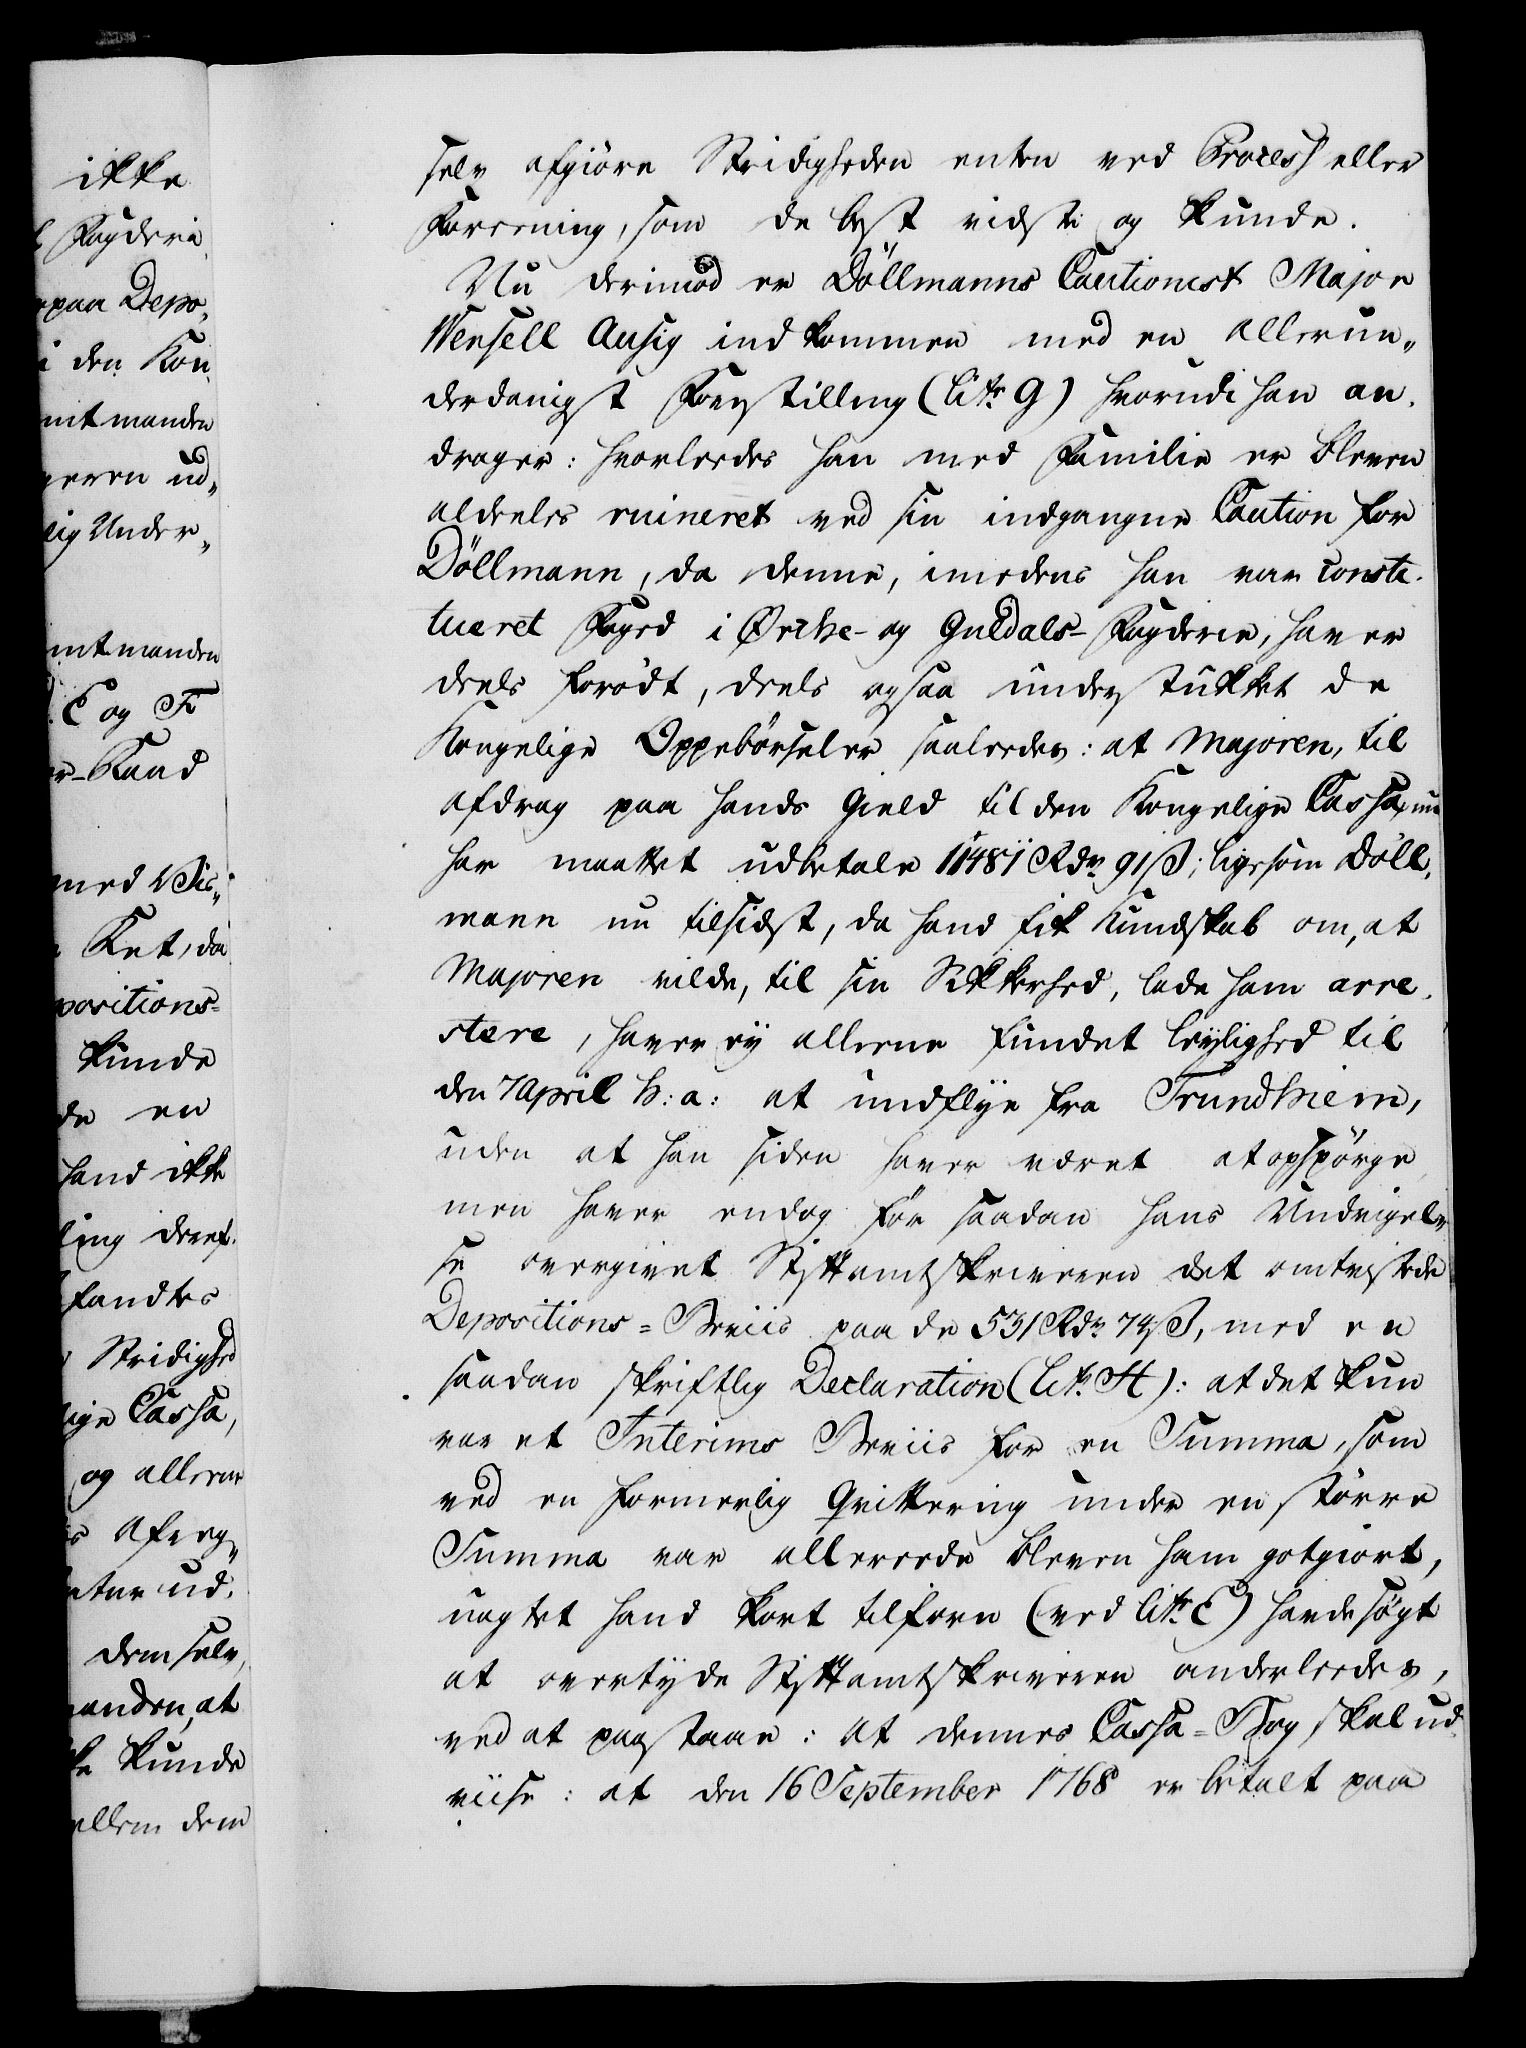 ikke
Fogderie
paa Depo¬
i den Kon
mtmanden
geren ud¬
lig Under¬
mtmanden
E og F
er-Raad
med Vis¬
Ret, da
positions-
kunde
de en
hand ikke
ling deref¬
fandtes
Stridighed
lige Cassa,
og allerun
s Afreg¬
ud.
dem selv,
manden, at
ke kunde
ellem dem
selv afgiöre Stridigheden enten ved Process eller
Forening, som de best vidste og kunde.
Nu derimod er Döllmanns Cautionist Major
Wensell Ausig indkommen med en allerun¬
derdanigst Forestilling (litr G) hvorudi han an¬
drager: hvorledes han med Familie er bleven
aldeeles ruineret ved sin indgangne Caution for
Döllmann, da denne, imedens han var consti¬
tueret Foged i Örche- og Guldals-Fogderie, haver
deels forödt, deels ogsaa understukket de
Kongelige Oppebörseler saaledes: at Majoren, til
Afdrag paa hands Gield til den Kongelige Cassa, nu
har maattet udbetale 11481 Rdr 91 ß; ligesom Döll¬
mann nu tilsidst, da hand fik Kundskab om, at
Majoren vilde, til sin Sikkerhed, lade ham arre¬
stere, haver ey alleene fundet leylighed til
den 7 April h: a: at undflye fra Trundhiem,
uden at han siden haver været at opspörge
men haver endog för saadan hans Undvigel¬
se overgivet Stiftamtskriveren det omtvistede
Depositions-Beviis paa de 531 Rdr 74 ß, med en
saadan skriftlig Declaration (litr. H): at det kun
var et Interims Beviis for en Summa, som
ved en formelig Qvittering under en större
Summa var allereede bleven ham gotgiort,
uagtet hand kort tilforn (ved litr. E) havde sögt
at overtyde Stiftamtskriveren anderleedes,
ved at paastaae: at dennes Cassa-Bog skal ud
viise: at den 16 September 1768 er betalt paa